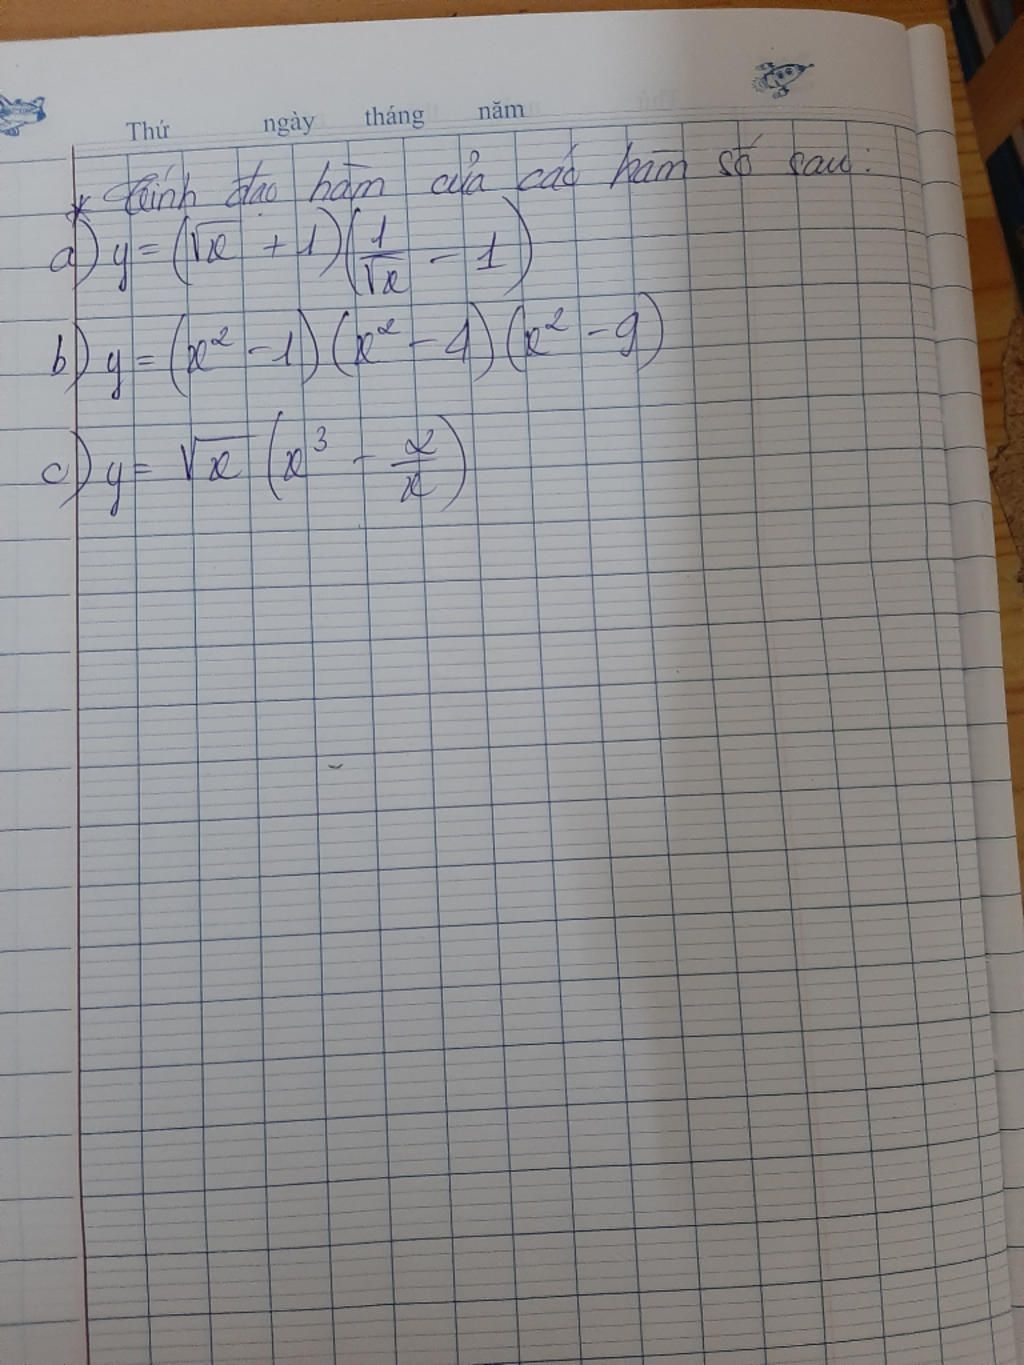 Thứ ngày tháng năm
* Tính đạo hàm của các hàm số sau:
a) y = (√x + 1)(1/√x - 1)
b) y = (x² - 1)(x² - 4)(x² - 9)
c) y = √x (x³ - 2/x)